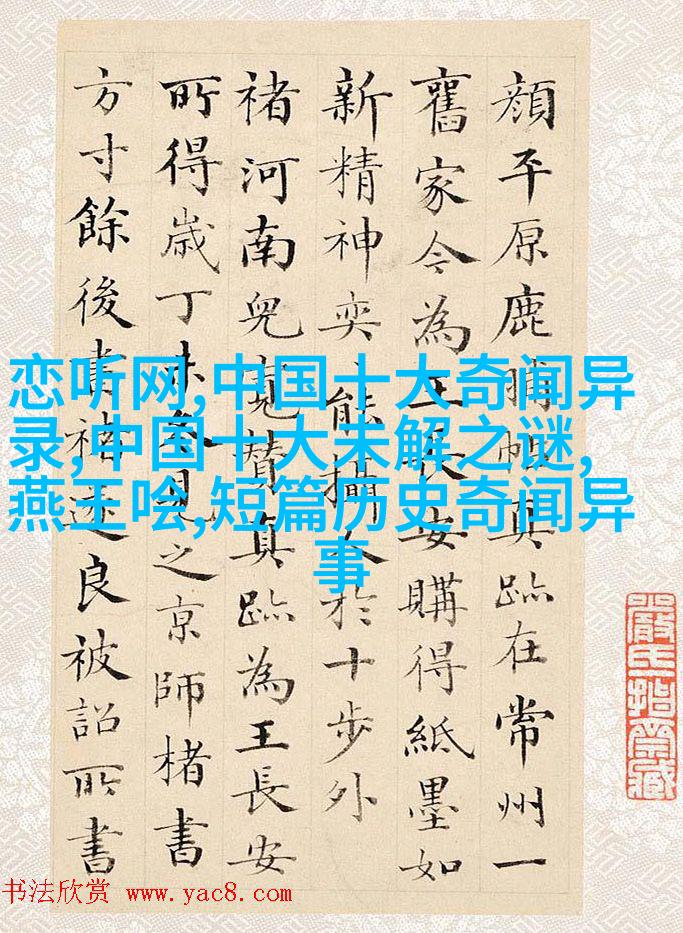 顔平原鹿脯帖真跡在常州一
舊家今為王長安購得紙墨如
新精神奕、能攝人於十步外
褚河南兒寬贊真跡為王長安
所得歲丁未余見之京師楮書
方寸餘後書褚遂良被詔所書
恋听网,中国十大奇闻异
录,中国十大未解之谜,
燕王哙,短篇历史奇闻异
事
书法欣赏 www.yac8.com